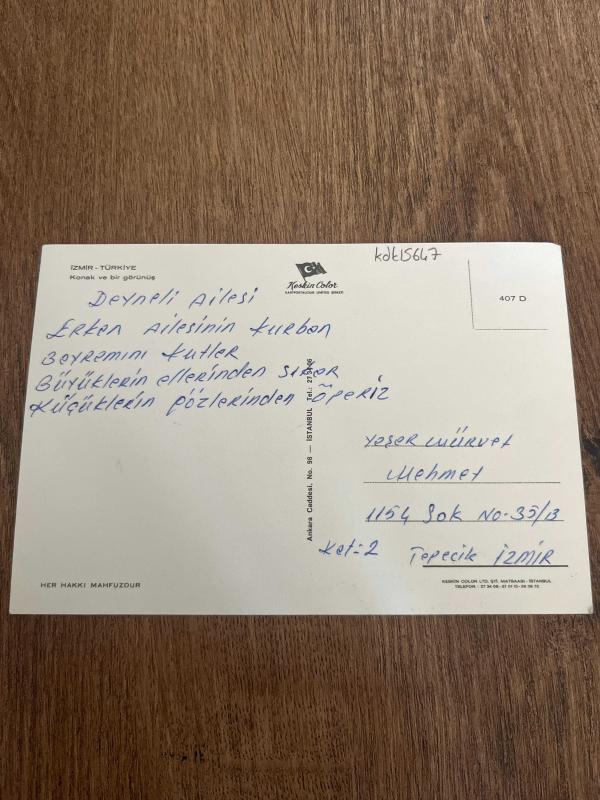 kdk15647
İZMİR - TÜRKİYE
Konak ve bir görünüş
Keskin Color
KARTPOSTALCILIK LİMİTED ŞİRKETİ
407 D
Deyneli Ailesi
Erken Ailesinin Kurban
Bayramını Kutlar
Büyüklerin ellerinden sıkar
Küçüklerin gözlerinden öperiz
Ankara Caddesi, No. 98 — İSTANBUL Tel.:
Yaşar Mürvet
Mehmet
1154 Sok No-35/B
Kat:2 Tepecik İZMİR
HER HAKKI MAHFUZDUR
KESKİN COLOR LTD. ŞTİ. MATBAASI - İSTANBUL
TELEFON :